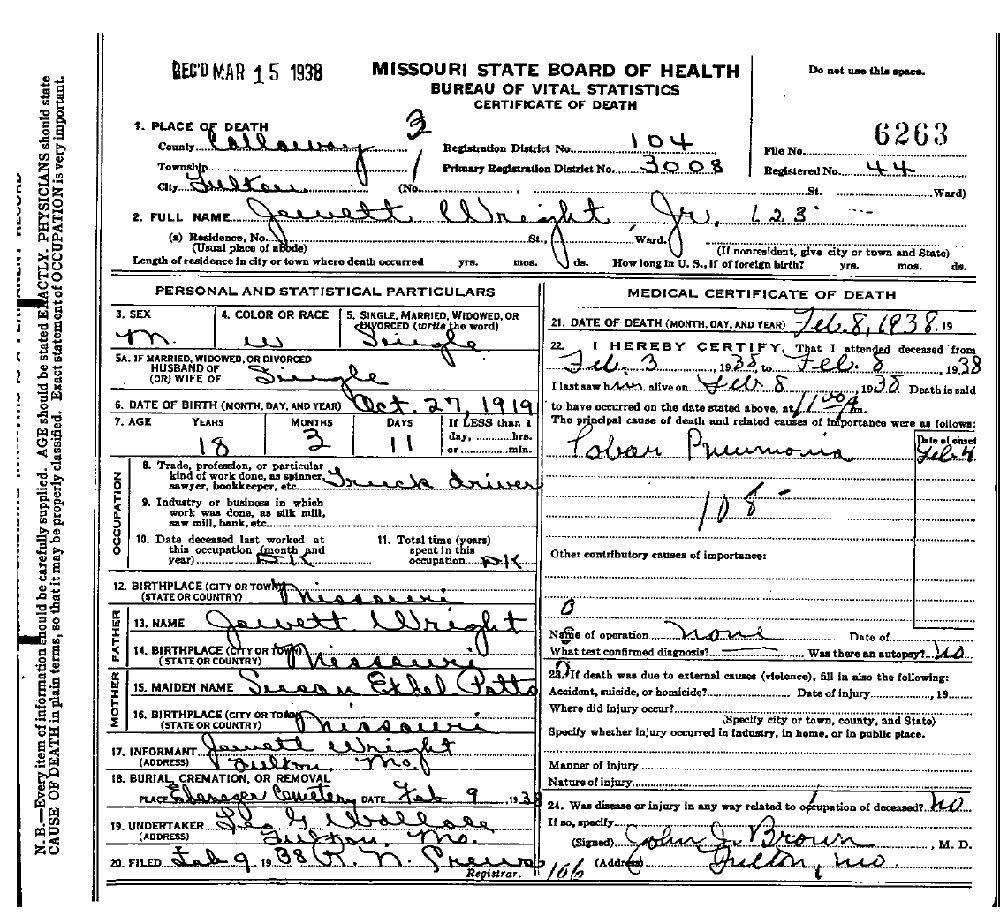 REC'D MAR 15 1938
MISSOURI STATE BOARD OF HEALTH
BUREAU OF VITAL STATISTICS
CERTIFICATE OF DEATH
Do not use this space.
6263
File No.
Registered No. 44
1. PLACE OF DEATH 3
County Callaway
Registration District No. 104
Township 1
Primary Registration District No. 3008
City Fulton (No. , St. Ward)
2. FULL NAME Jewett Wright Jr. 123
(a) Residence, No. St., Ward.
(Usual place of abode) (If nonresident, give city or town and State)
Length of residence in city or town where death occurred yrs. mos. ds. How long in U. S., if of foreign birth? yrs. mos. ds.
PERSONAL AND STATISTICAL PARTICULARS
3. SEX M.
4. COLOR OR RACE W
5. SINGLE, MARRIED, WIDOWED, OR
DIVORCED (write the word) Single
5A. IF MARRIED, WIDOWED, OR DIVORCED
HUSBAND OF
(OR) WIFE OF Single
6. DATE OF BIRTH (MONTH, DAY, AND YEAR) Oct. 27, 1919
7. AGE YEARS MONTHS DAYS If LESS than 1
day, ........hrs.
or ........min.
18 3 11
OCCUPATION
8. Trade, profession, or particular
kind of work done, as spinner,
sawyer, bookkeeper, etc. Truck driver
9. Industry or business in which
work was done, as silk mill,
saw mill, bank, etc.
10. Date deceased last worked at
this occupation (month and
year) DK
11. Total time (years)
spent in this
occupation DK
12. BIRTHPLACE (CITY OR TOWN)
(STATE OR COUNTRY) Missouri
FATHER
13. NAME Jewett Wright
14. BIRTHPLACE (CITY OR TOWN)
(STATE OR COUNTRY) Missouri
MOTHER
15. MAIDEN NAME Susan Ethel Potts
16. BIRTHPLACE (CITY OR TOWN)
(STATE OR COUNTRY) Missouri
17. INFORMANT Jewett Wright
(ADDRESS) Fulton, Mo.
18. BURIAL, CREMATION, OR REMOVAL
PLACE Ebenezer Cemetery DATE Feb 9, 1938
19. UNDERTAKER Wallace
(ADDRESS) Fulton Mo.
20. FILED Feb 9, 1938 R. N. Crews
Registrar.
MEDICAL CERTIFICATE OF DEATH
21. DATE OF DEATH (MONTH, DAY, AND YEAR) Feb. 8, 1938. 19
22. I HEREBY CERTIFY, That I attended deceased from
Feb. 3, 1938 to Feb. 8, 1938
I last saw him alive on Feb. 8, 1938 Death is said
to have occurred on the date stated above, at m.
The principal cause of death and related causes of importance were as follows:
Date of onset
Lobar Pneumonia Feb 4
108-
Other contributory causes of importance:
0
Name of operation none Date of
What test confirmed diagnosis? Was there an autopsy? no
23. If death was due to external causes (violence), fill in also the following:
Accident, suicide, or homicide? Date of injury , 19
Where did injury occur?
(Specify city or town, county, and State)
Specify whether injury occurred in industry, in home, or in public place.
Manner of injury
Nature of injury
24. Was disease or injury in any way related to occupation of deceased? No
If so, specify
(Signed) John J. Brown, M. D.
106 (Address) Fulton, Mo.
N. B.—Every item of information should be carefully supplied. AGE should be stated EXACTLY. PHYSICIANS should state
CAUSE OF DEATH in plain terms, so that it may be properly classified. Exact statement of OCCUPATION is very important.